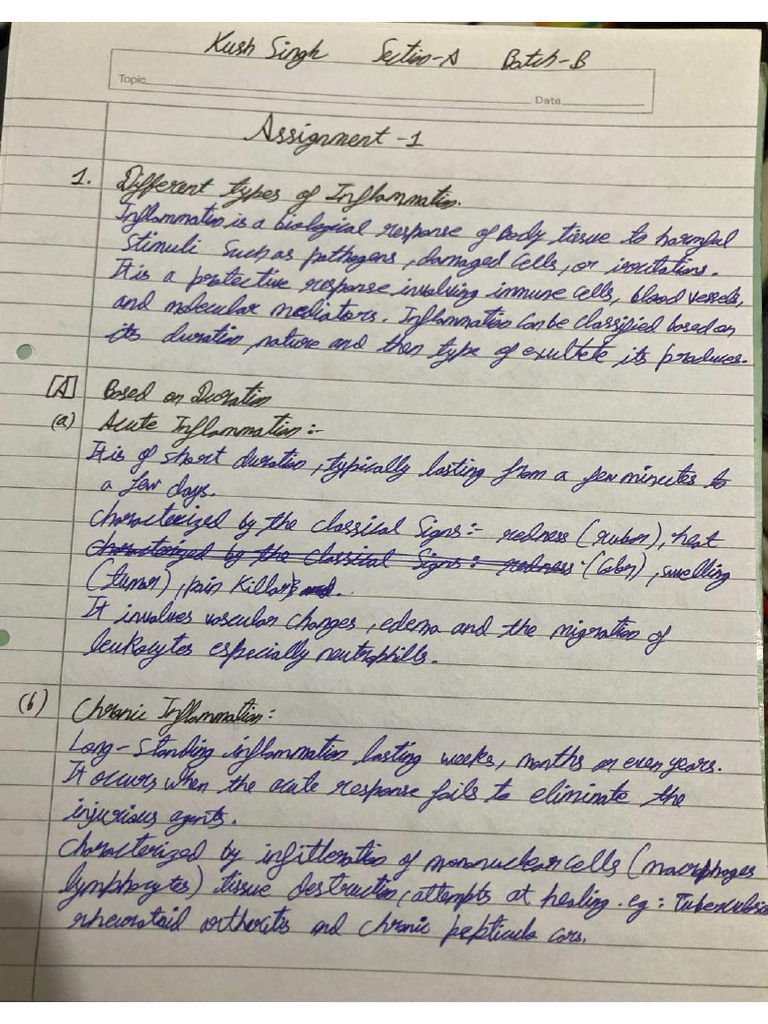 Kush Singh Section-A Batch-B
Topic
Date
Assignment-1
1. Different types of Inflammation.
Inflammation is a biological response of Body tissue to harmful
stimuli such as pathogens, damaged cells, or irritations.
It is a protective response involving immune cells, blood vessels,
and molecular mediators. Inflammation can be classified based on
its duration, nature and then type of its produces.
[A] Based on Duration
(a) Acute Inflammation :-
It is of short duration, typically lasting from a few minutes to
a few days.
Characterized by the classical Signs :- redness (rubor), heat
Characterized by the classical Signs : redness (calor), swelling
(tumor), pain
It involves vascular changes, edema and the migration of
leukocytes especially neutrophills.
(b) Chronic Inflammation :
Long-standing inflammation lasting weeks, months or even years.
It occurs when the acute response fails to eliminate the
injurious agents.
Characterized by of mononuclear cells (macrophages
lymphocytes) tissue destruction, attempts at healing. eg : Tuberculosis
rheumatoid and chronic